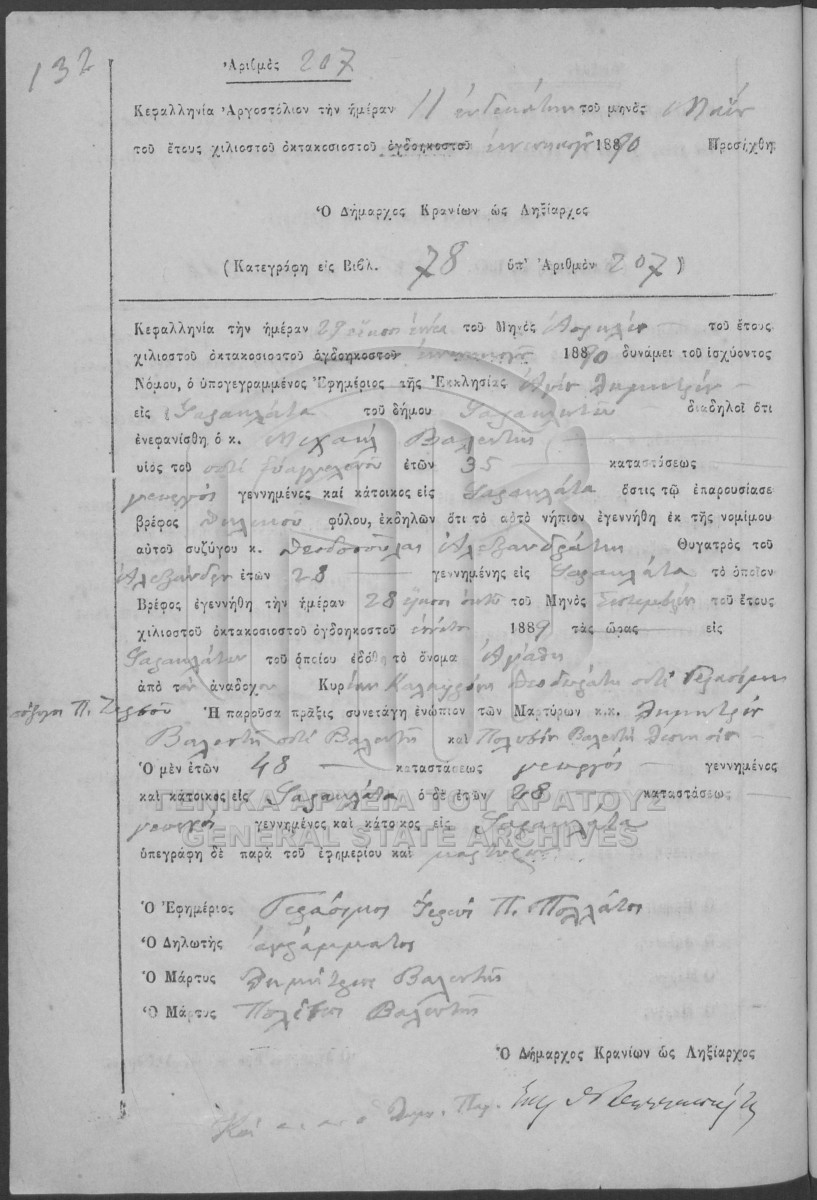 132
Ἀριθμὸς 207
Κεφαλληνία Ἀργοστόλιον τὴν ἡμέραν 11 ἑνδεκάτην τοῦ μηνὸς Μαΐου
τοῦ ἔτους χιλιοστοῦ ὀκτακοσιοστοῦ ὀγδοηκοστοῦ ἐννενηκοστοῦ 1890 Προσήχθη
Ὁ Δήμαρχος Κρανίων ὡς Ληξίαρχος
(Κατεγράφη εἰς Βιβλ. 78 ὑπ' Ἀριθμὸν 207)
Κεφαλληνία τὴν ἡμέραν 29 εἴκοσι ἐννέα τοῦ Μηνὸς Ἀπριλίου τοῦ ἔτους
χιλιοστοῦ ὀκτακοσιοστοῦ ὀγδοηκοστοῦ ἐννενηκοστοῦ 1890 δυνάμει τοῦ ἰσχύοντος
Νόμου, ὁ ὑπογεγραμμένος Ἐφημέριος τῆς Ἐκκλησίας Ἁγίου Δημητρίου
εἰς Φαρακλάτα τοῦ δήμου Φαρακλάτων διαδηλοῖ ὅτι
ἐνεφανίσθη ὁ κ. Μιχαὴλ Βαλεντής
υἱὸς τοῦ ποτὲ Εὐαγγελινοῦ ἐτῶν 35 καταστάσεως
γεωργός γεννημένος καὶ κάτοικος εἰς Φαρακλάτα ὅστις τῷ ἐπαρουσίασε
βρέφος θηλυκοῦ φύλου, ἐκδηλῶν ὅτι τὸ αὐτὸ νήπιον ἐγεννήθη ἐκ τῆς νομίμου
αὐτοῦ συζύγου κ. Θεοδοσούλας Ἀλεξανδράτου Θυγατρὸς τοῦ
Ἀλεξάνδρου ἐτῶν 28 γεννημένης εἰς Φαρακλάτα τὸ ὁποῖον
Βρέφος ἐγεννήθη τὴν ἡμέραν 28 εἴκοσι ὀκτὼ τοῦ Μηνὸς Σεπτεμβρίου τοῦ ἔτους
χιλιοστοῦ ὀκτακοσιοστοῦ ὀγδοηκοστοῦ ἐννάτου 1889 τὰς ὥρας εἰς
Φαρακλάτων τοῦ ὁποίου ἐδόθη τὸ ὄνομα Ἀγάθη
ἀπὸ τὸν ἀνάδοχον Θεοδωράτου ποτὲ Γερασίμου
Π. Ἡ παροῦσα πρᾶξις συνετάγη ἐνώπιον τῶν Μαρτύρων κ.κ. Δημητρίου
Βαλεντὴ ποτὲ Βαλεντῆ καὶ Βαλεντῆ
Ὁ μὲν ἐτῶν 48 καταστάσεως γεωργός γεννημένος
καὶ κάτοικος εἰς Φαρακλάτα ὁ δὲ ἐτῶν 28 καταστάσεως
γεωργός γεννημένος καὶ κάτοικος εἰς Φαρακλάτα
ὑπεγράφη δὲ παρὰ τοῦ ἐφημερίου καὶ μαρτύρων.
ΓΕΝΙΚΑ ΑΡΧΕΙΑ ΤΟΥ ΚΡΑΤΟΥΣ
GENERAL STATE ARCHIVES
Ὁ Ἐφημέριος Γεράσιμος Ἱερεύς Π. Πολλάτος
Ὁ Δηλωτὴς ἀγράμματος
Ὁ Μάρτυς Δημήτριος Βαλεντής
Ὁ Μάρτυς Βαλεντής
Ὁ Δήμαρχος Κρανίων ὡς Ληξίαρχος